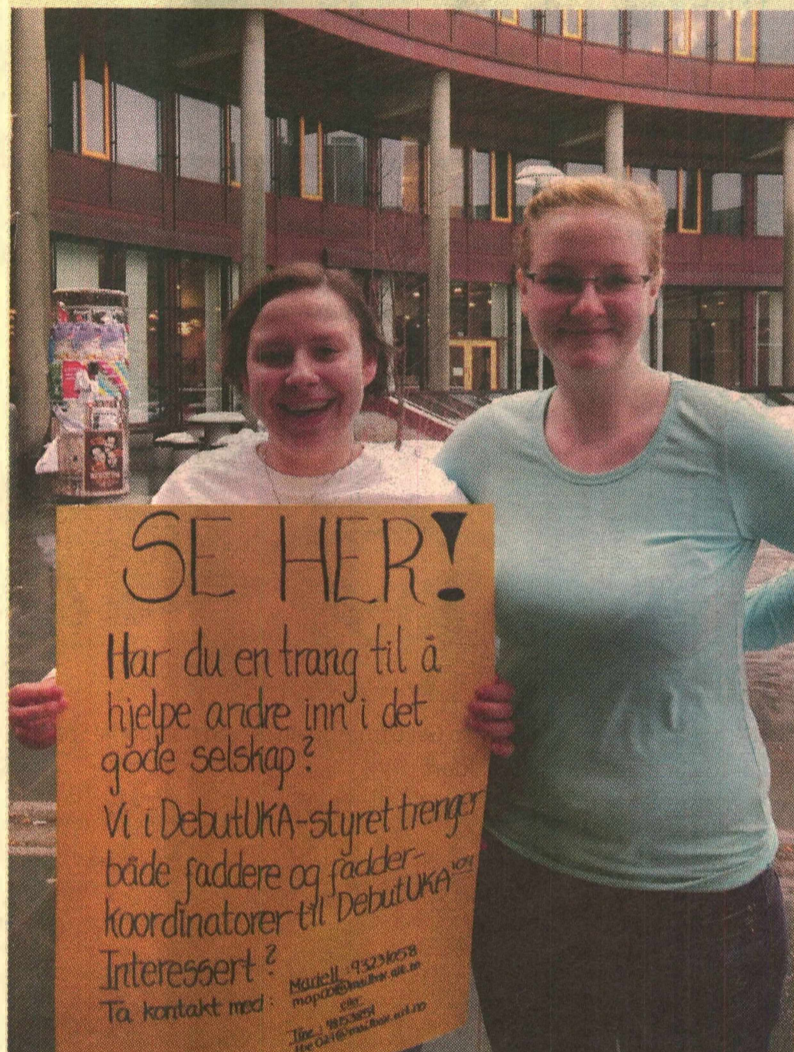 SE HER!
Har du en trang til å
hjelpe andre inn i det
gode selskap?
Vi i DebutUKA-styret trenger
både faddere og fadder-
koordinatorer til DebutUKA
Interessert?
Ta kontakt med: Mariell: 93231058
eller
Tine: